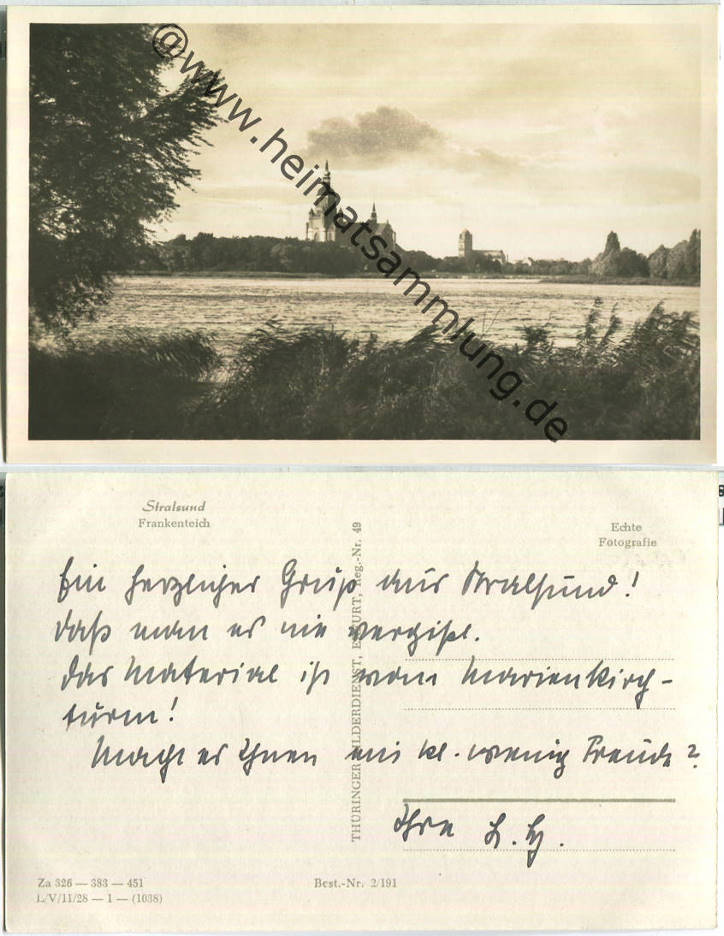 @www.heimatsammlung.de
Stralsund
Frankenteich
Echte
Fotografie
THÜRINGER BILDERDIENST, ERFURT, Reg.-Nr. 49
Ein herzlicher Gruß aus Stralsund!
daß man es nie vergißt.
Das Material ist vom Marienkirch-
turm!
Macht es Ihnen ein kl. wenig Freude?
Ihre
Za 326 — 383 — 451
L/V/11/28 — 1 — (1038)
Best.-Nr. 2/191